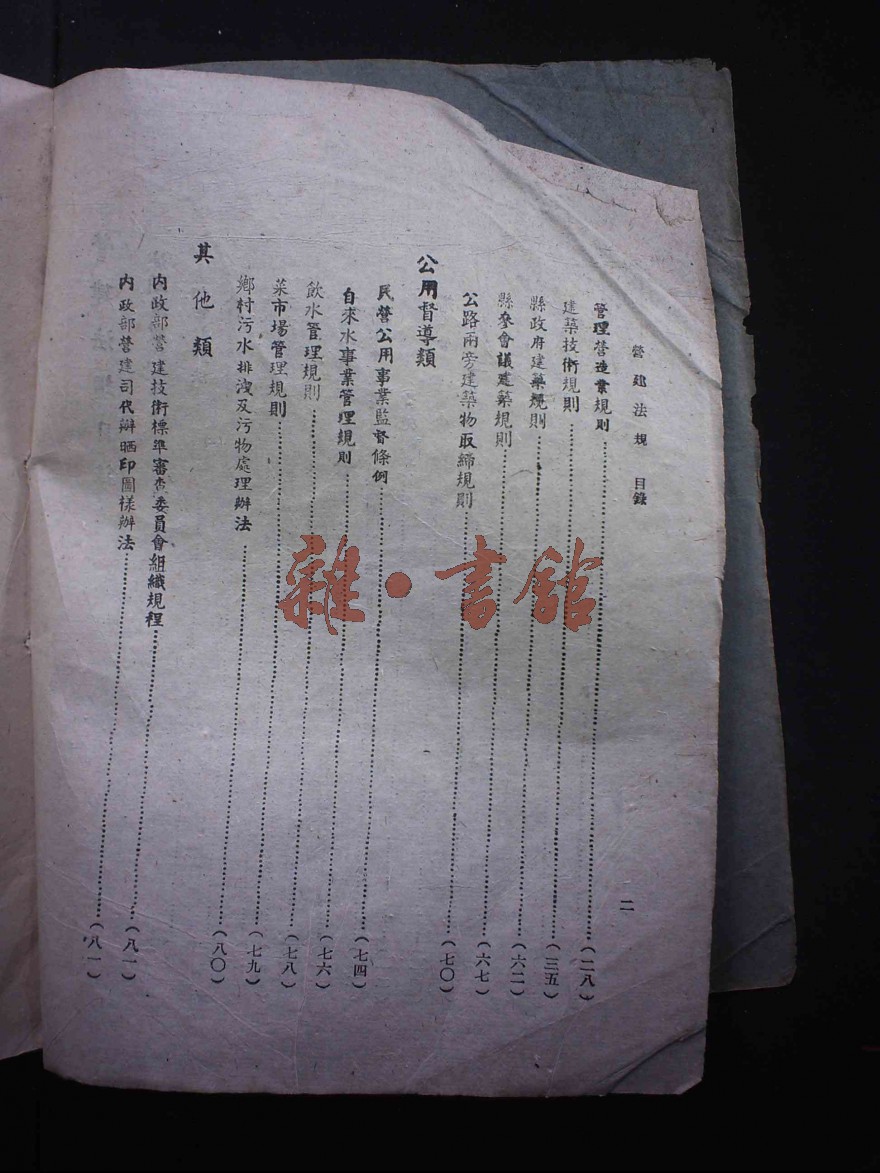 營建法規 目錄
二
管理營造業規則……(二八)
建築技術規則……(三五)
縣政府建築規則……(六二)
縣參會議建築規則……(六七)
公路兩旁建築物取締規則……(七〇)
公用督導類
民營公用事業監督條例……(七四)
自來水事業管理規則……(七六)
飲水管理規則……(七八)
菜市場管理規則……(七九)
鄉村污水排洩及污物處理辦法……(八〇)
其他類
內政部營建技術標準審查委員會組織規程……(八一)
內政部營建司代辦晒印圖樣辦法……(八一)
雜·書館